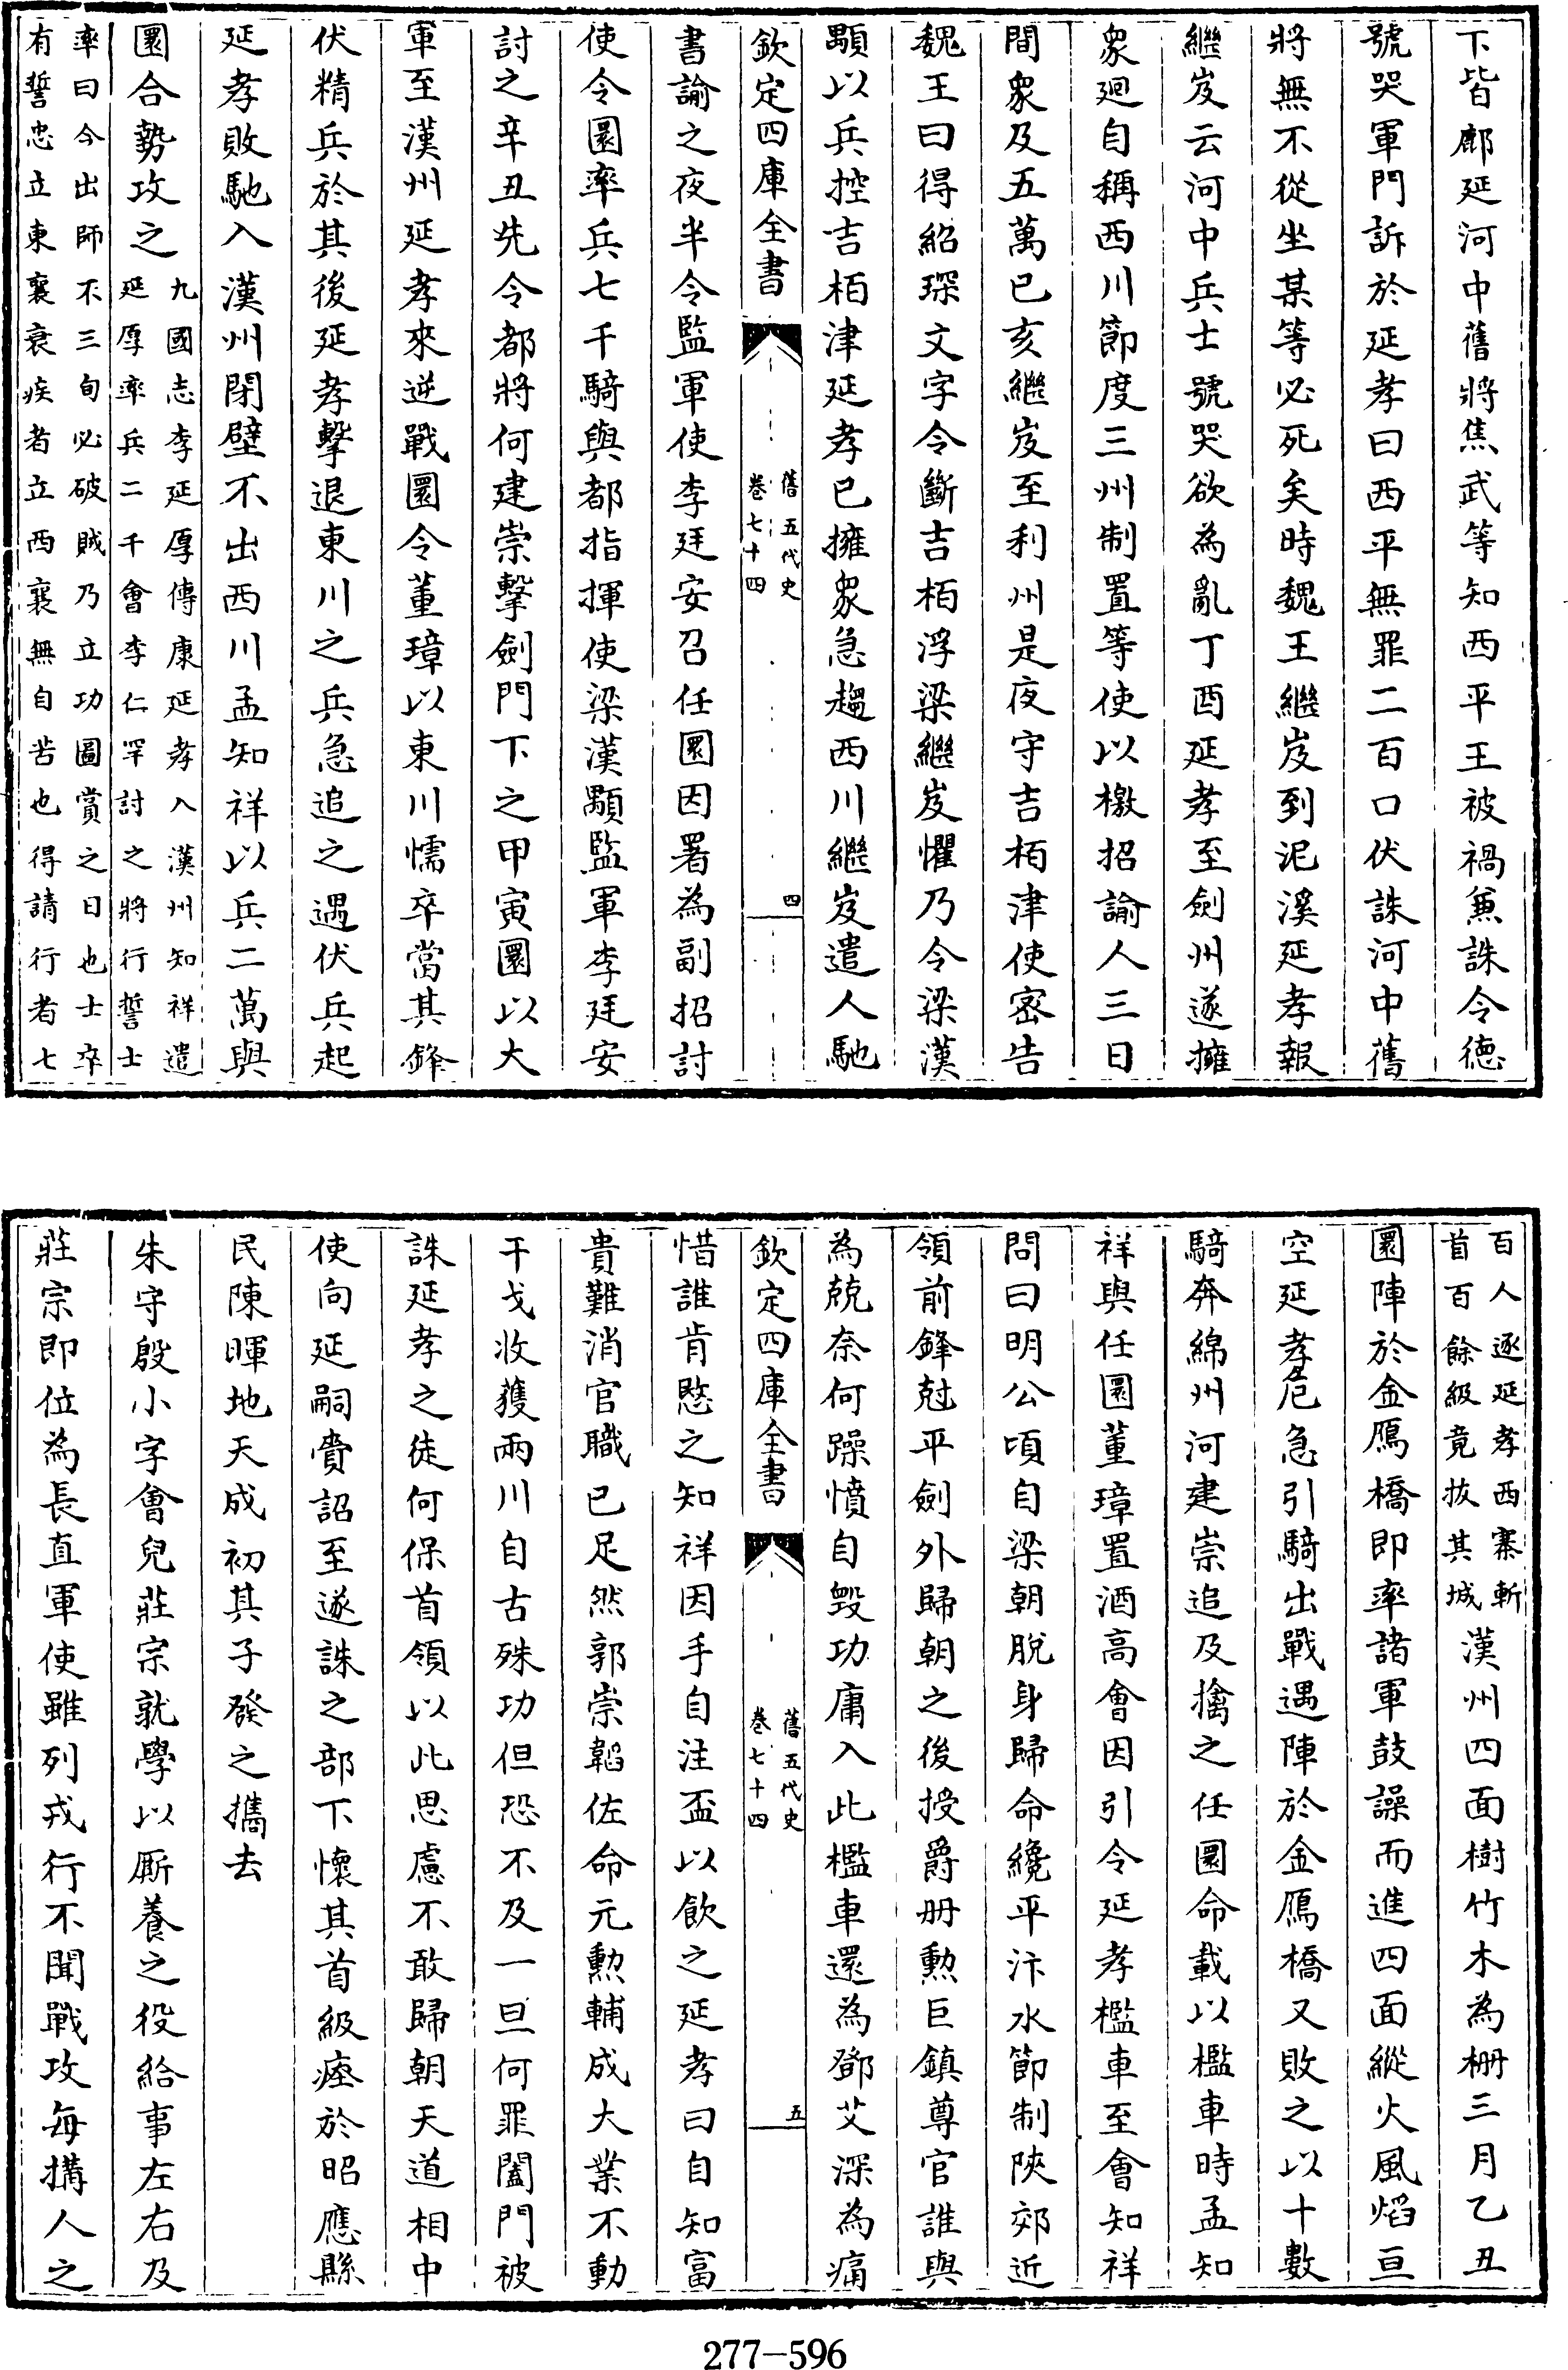 下皆鄜延河中舊將焦武等知西平王被禍兼誅令德
號哭軍門訴於延孝曰西平無罪二百口伏誅河中舊
將無不從坐某等必死矣時魏王繼岌到泥溪延孝報
繼岌云河中兵士號哭欲為亂丁酉延孝至劍州遂擁
眾廻自稱西川節度三州制置等使以檄招諭人三日
間眾及五萬已亥繼岌至利州是夜守吉栢津使密告
魏王曰得紹琛文字令斷吉栢浮梁繼岌懼乃令梁漢
顒以兵控吉栢津延孝已擁眾急趨西川繼岌遣人馳
欽定四庫全書
舊五代史
卷七十四
四
書諭之夜半令監軍使李廷安召任圜因署為副招討
使令圜率兵七千騎與都指揮使梁漢顒監軍李廷安
討之辛丑先令都將何建崇擊劍門下之甲寅圜以大
軍至漢州延孝來逆戰圜令董璋以東川懦卒當其鋒
伏精兵於其後延孝擊退東川之兵急追之遇伏兵起
延孝敗馳入漢州閉壁不出西川孟知祥以兵二萬與
圜合勢攻之
九國志李延厚傳康延孝入漢州知祥遣
延厚率兵二千會李仁罕討之將行誓士
率曰今出師不三旬必破賊乃立功圖賞之日也士卒
有誓忠立東襄衰疾者立西襄無自苦也得請行者七
百人逐延孝西寨斬
首百餘級竟拔其城
漢州四面樹竹木為柵三月乙丑
圜陣於金鴈橋即率諸軍鼓譟而進四面縱火風焰亘
空延孝危急引騎出戰遇陣於金鴈橋又敗之以十數
騎奔綿州河建崇追及擒之任圜命載以檻車時孟知
祥與任圜董璋置酒高會因引令延孝檻車至會知祥
問曰明公頃自梁朝脫身歸命纔平汴水節制陜郊近
領前鋒尅平劍外歸朝之後授爵冊勲巨鎮尊官誰與
為兢奈何躁憤自毀功庸入此檻車還為鄧艾深為痛
欽定四庫全書
舊五代史
卷七十四
五
惜誰肯愍之知祥因手自注盃以飲之延孝曰自知富
貴難消官職已足然郭崇韜佐命元勲輔成大業不動
干戈收獲兩川自古殊功但恐不及一旦何罪闔門被
誅延孝之徒何保首領以此思慮不敢歸朝天道相中
使向延嗣賫詔至遂誅之部下懷其首級瘞於昭應縣
民陳暉地天成初其子發之攜去
朱守殷小字會兒莊宗就學以厮養之役給事左右及
莊宗即位為長直軍使雖列戎行不聞戰攻每搆人之
277-596